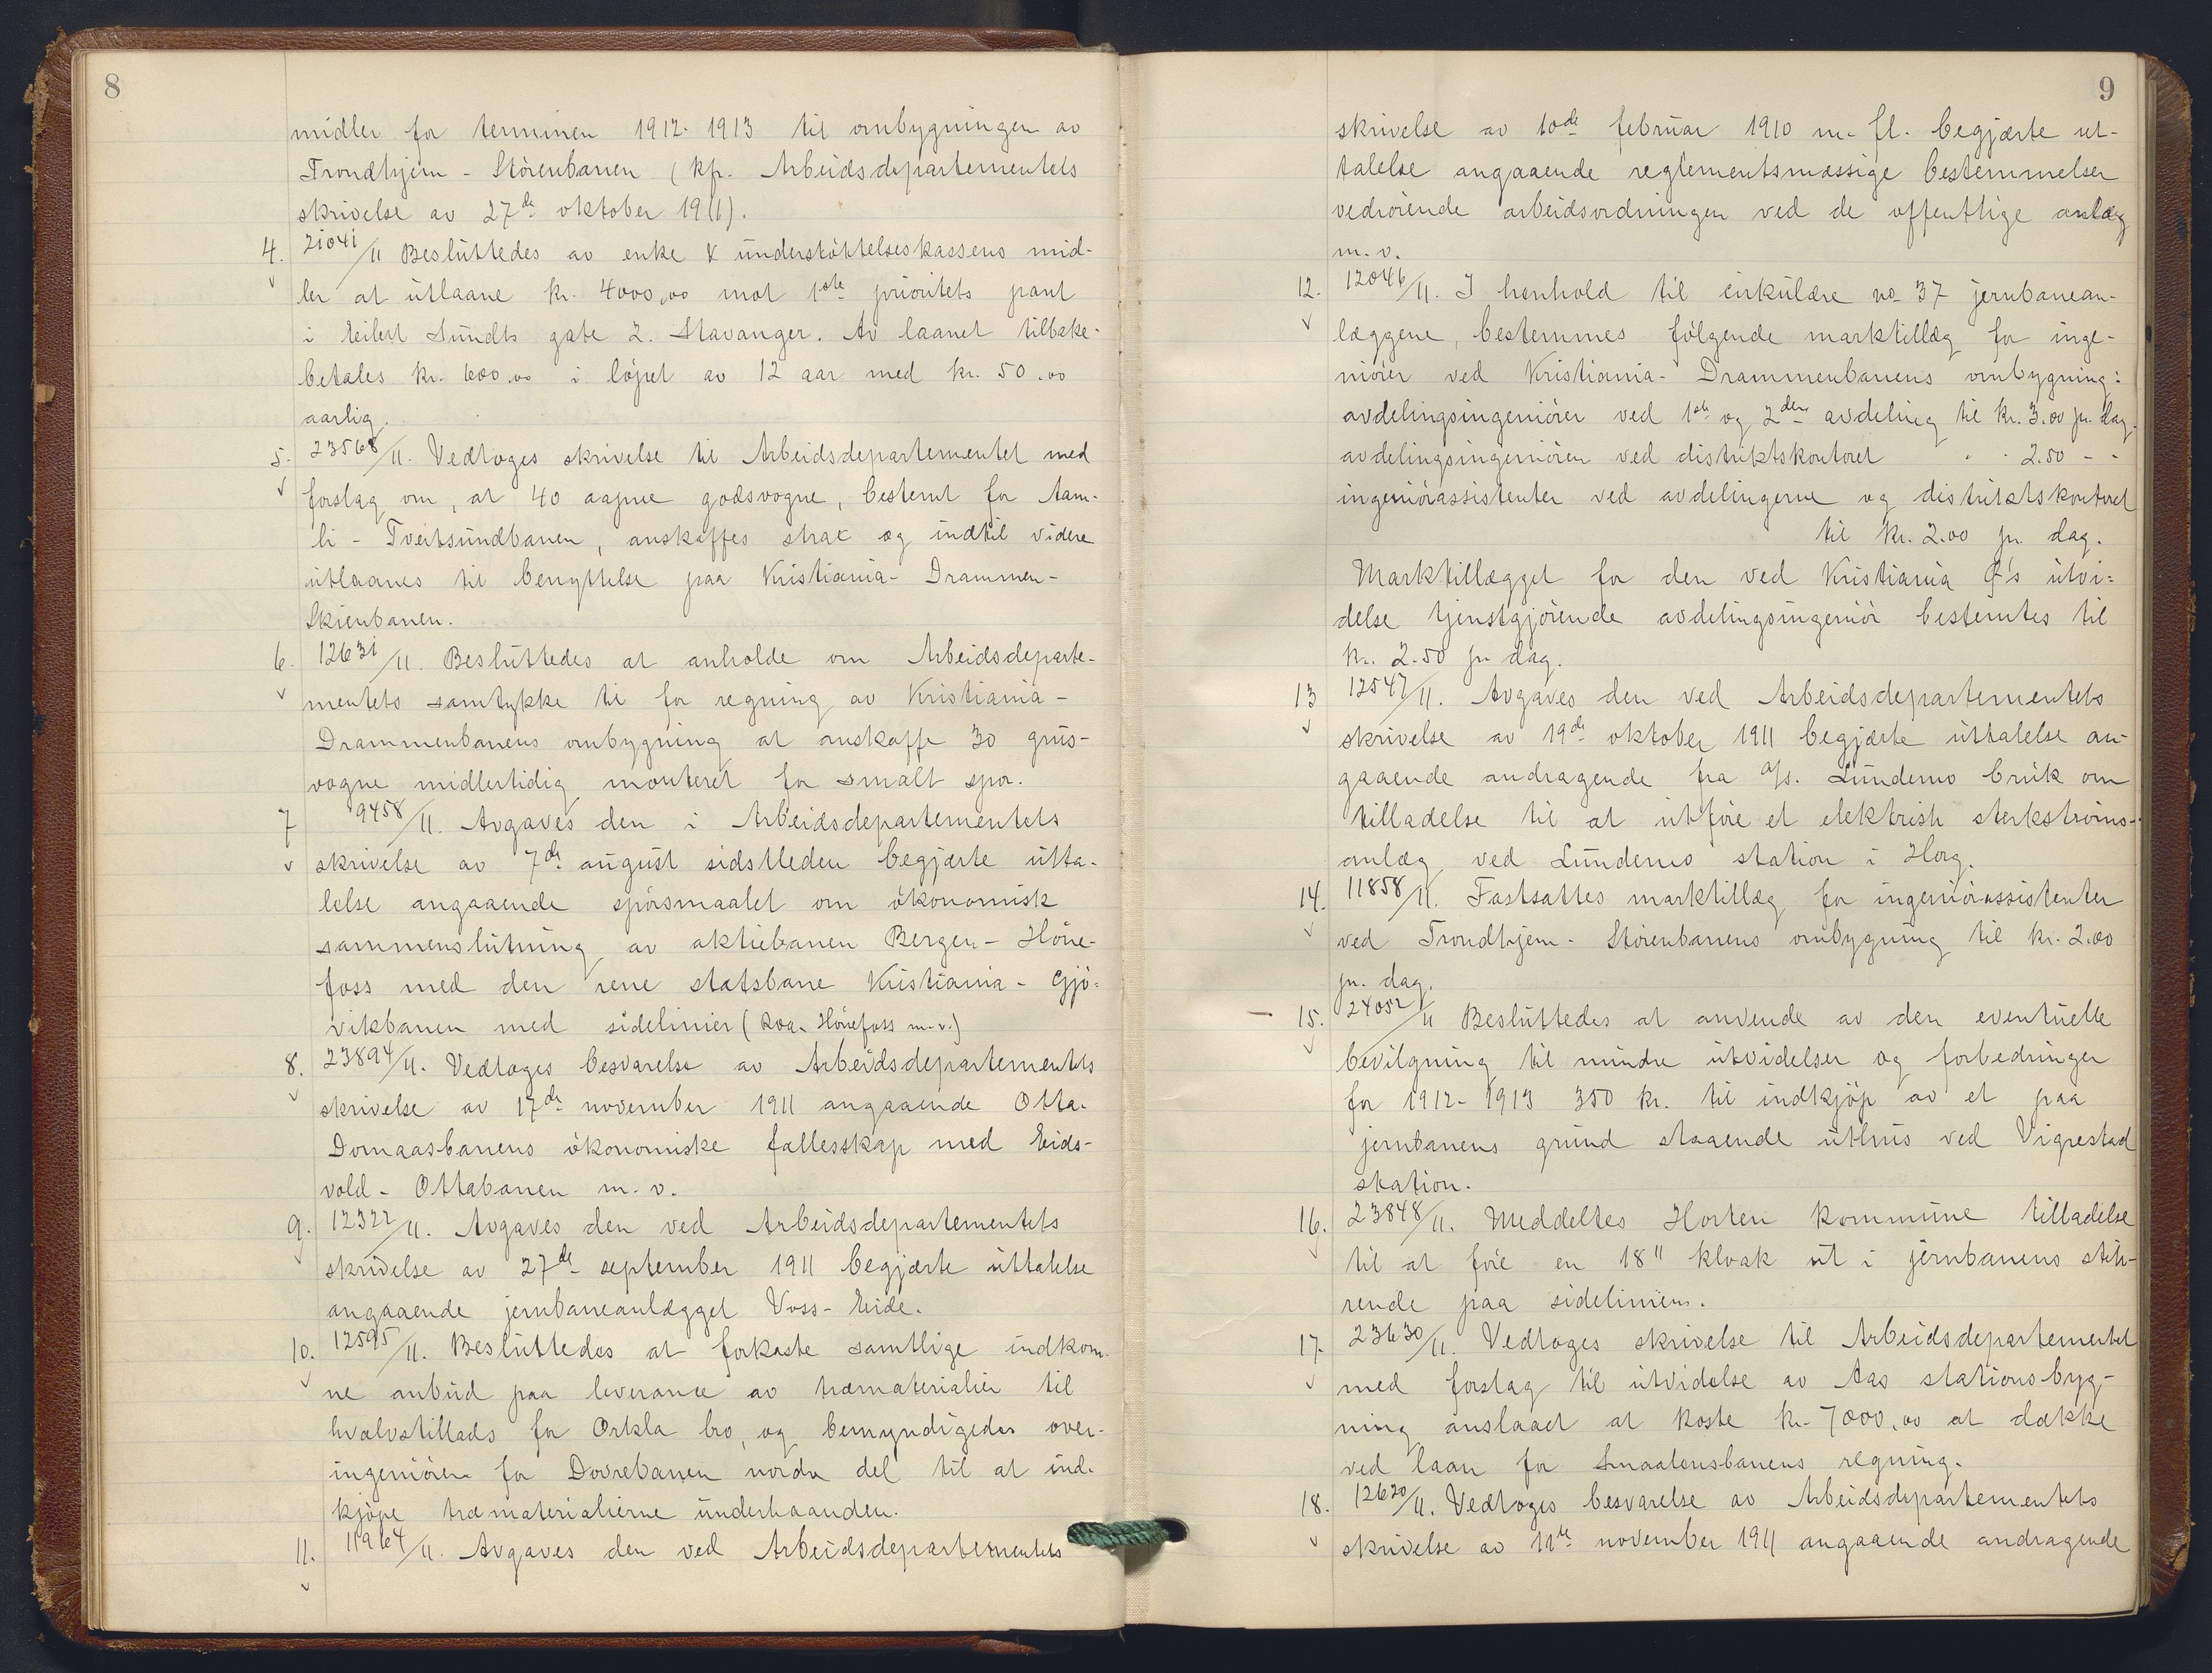 8
midler for terminen 1912-1913 til ombygningen av
Trondhjem - Störenbanen (kfr. Arbeidsdepartementets
skrivelse av 27de oktober 1911).
4. 21041/11 Besluttedes av enke & understöttelseskassens mid-
ler at utlaane kr. 4000,00 mot 1ste prioritets pant
i Eilert Sundts gate 2. Stavanger. Av laanet tilbake-
betales kr. 600.00 i löpet av 12 aar med kr. 50.00
aarlig.
5. 23568/11. Vedtoges skrivelse til Arbeidsdepartementet med
forslag om, at 40 aapne godsvogne, bestemt for Aam-
li - Tveitsundbanen, anskaffes strax og indtil videre
utlaanes til benyttelse paa Kristiania - Drammen -
Skienbanen.
6. 12631/11. Besluttedes at anholde om Arbeidsdeparte-
mentets samtykke til for regning av Kristiania -
Drammenbanens ombygning at anskaffe 30 grus-
vogne midlertidig monteret for smalt spor.
7 9458/11. Avgaves den i Arbeidsdepartementets
skrivelse av 7de august sidstleden begjærte utta-
lelse angaaende spörsmaalet om ökonomisk
sammenslutning av aktiebanen Bergen - Höne-
foss med den rene statsbane Kristiania - Gjö-
vikbanen med sidelinier (Roa - Hönefoss m.v.)
8. 23894/11. Vedtoges besvarelse av Arbeidsdepartementets
skrivelse av 17de november 1911 angaaende Otta-
Domaasbanens ökonomiske fællesskap med Eids-
vold - Ottabanen m.v.
9. 12322/11. Avgaves den ved Arbeidsdepartementets
skrivelse av 27de september 1911 begjærte uttalelse
angaaende jernbaneanlægget Voss - Eide.
10. 12595/11. Besluttedes at forkaste samtlige indkom-
ne anbud paa leverance av træmaterialier til
hvælvstillads for Orkla bro, og bemyndigedes over-
ingeniören for Dovrebanen nordre del til at ind-
kjöpe træmaterialierne underhaanden.
11. 11964/11. Avgaves den ved Arbeidsdepartementets
9
skrivelse av 10de februar 1910 m.fl. begjærte ut-
talelse angaaende reglementsmæssige bestemmelser
vedrörende arbeidsordningen ved de offentlige anlæg
m.v.
12. 12046/11. I henhold til cirkulære no 37 jernbanean-
læggene, bestemmes fölgende marktillæg for inge-
niörer ved Kristiania - Drammenbanens ombygning:
avdelingsingeniörer ved 1ste og 2den avdeling til kr. 3.00 pr. dag.
avdelingsingeniören ved distriktskontoret - - 2.50 - -
ingeniörassistenter ved avdelingerne og distriktskontoret
til kr. 2.00 pr. dag.
Marktillægget for den ved Kristiania Ø's utvi-
delse tjenstgjörende avdelingsingeniör bestemtes til
kr. 2.50 pr dag.
13 12547/11. Avgaves den ved Arbeidsdepartementets
skrivelse av 19de oktober 1911 begjærte uttalelse an-
gaaende andragende fra A/s. Lundemo bruk om
tilladelse til at utföre et elektrisk sterkströms-
anlæg ved Lundemo station i Horg.
14. 11858/11. Fastsattes marktillæg for ingeniörassistenter
ved Trondhjem - Störenbanens ombygning til kr. 2.00
pr. dag.
15. 24052/11 Besluttedes at anvende av den eventuelle
bevilgning til mindre utvidelser og forbedringer
for 1912-1913 350 kr. til indkjöp av et paa
jernbanens grund staaende uthus ved Vigrestad
station.
16. 23848/11. Meddeltes Horten kommune tilladelse
til at före en 18" kloak ut i jernbanens stik-
rende paa sidelinien.
17. 23630/11. Vedtoges skrivelse til Arbeidsdepartementet
med forslag til utvidelse av Aas stationsbyg-
ning anslaaet at koste kr. 7000,00 at dække
ved laan for Smaalensbanens regning.
18. 12620/11. Vedtoges besvarelse av Arbeidsdepartementets
skrivelse av 11te november 1911 angaaende andragende